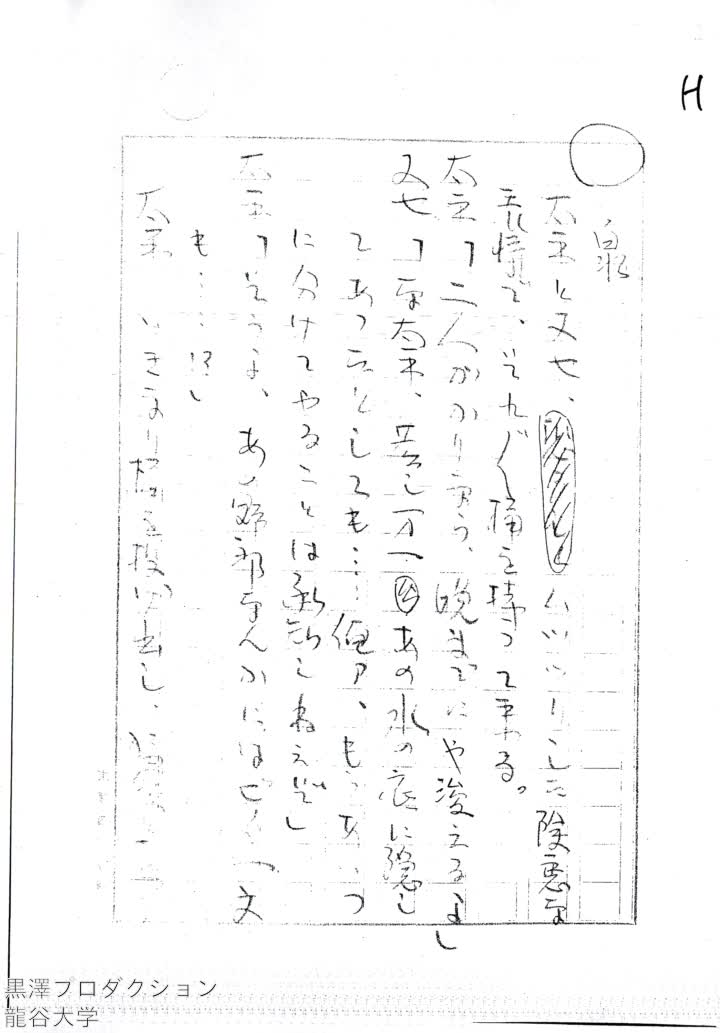 H
泉
太平と又七、ムッツリした険悪な
表情で、それ〴〵桶を持って来る。
太平「二人がかりなら、晩までにや浚えるよ」
又七「な太平、若し万一あの水の底に隠し
てあったとしても……俺ア、もうあいつ
に分けてやることは承知しねえぞ」
太平「そうよ、あの野郎なんかにはビタ一文
も……」
太平 いきなり桶を投げ出し、
黒澤プロダクション
龍谷大学